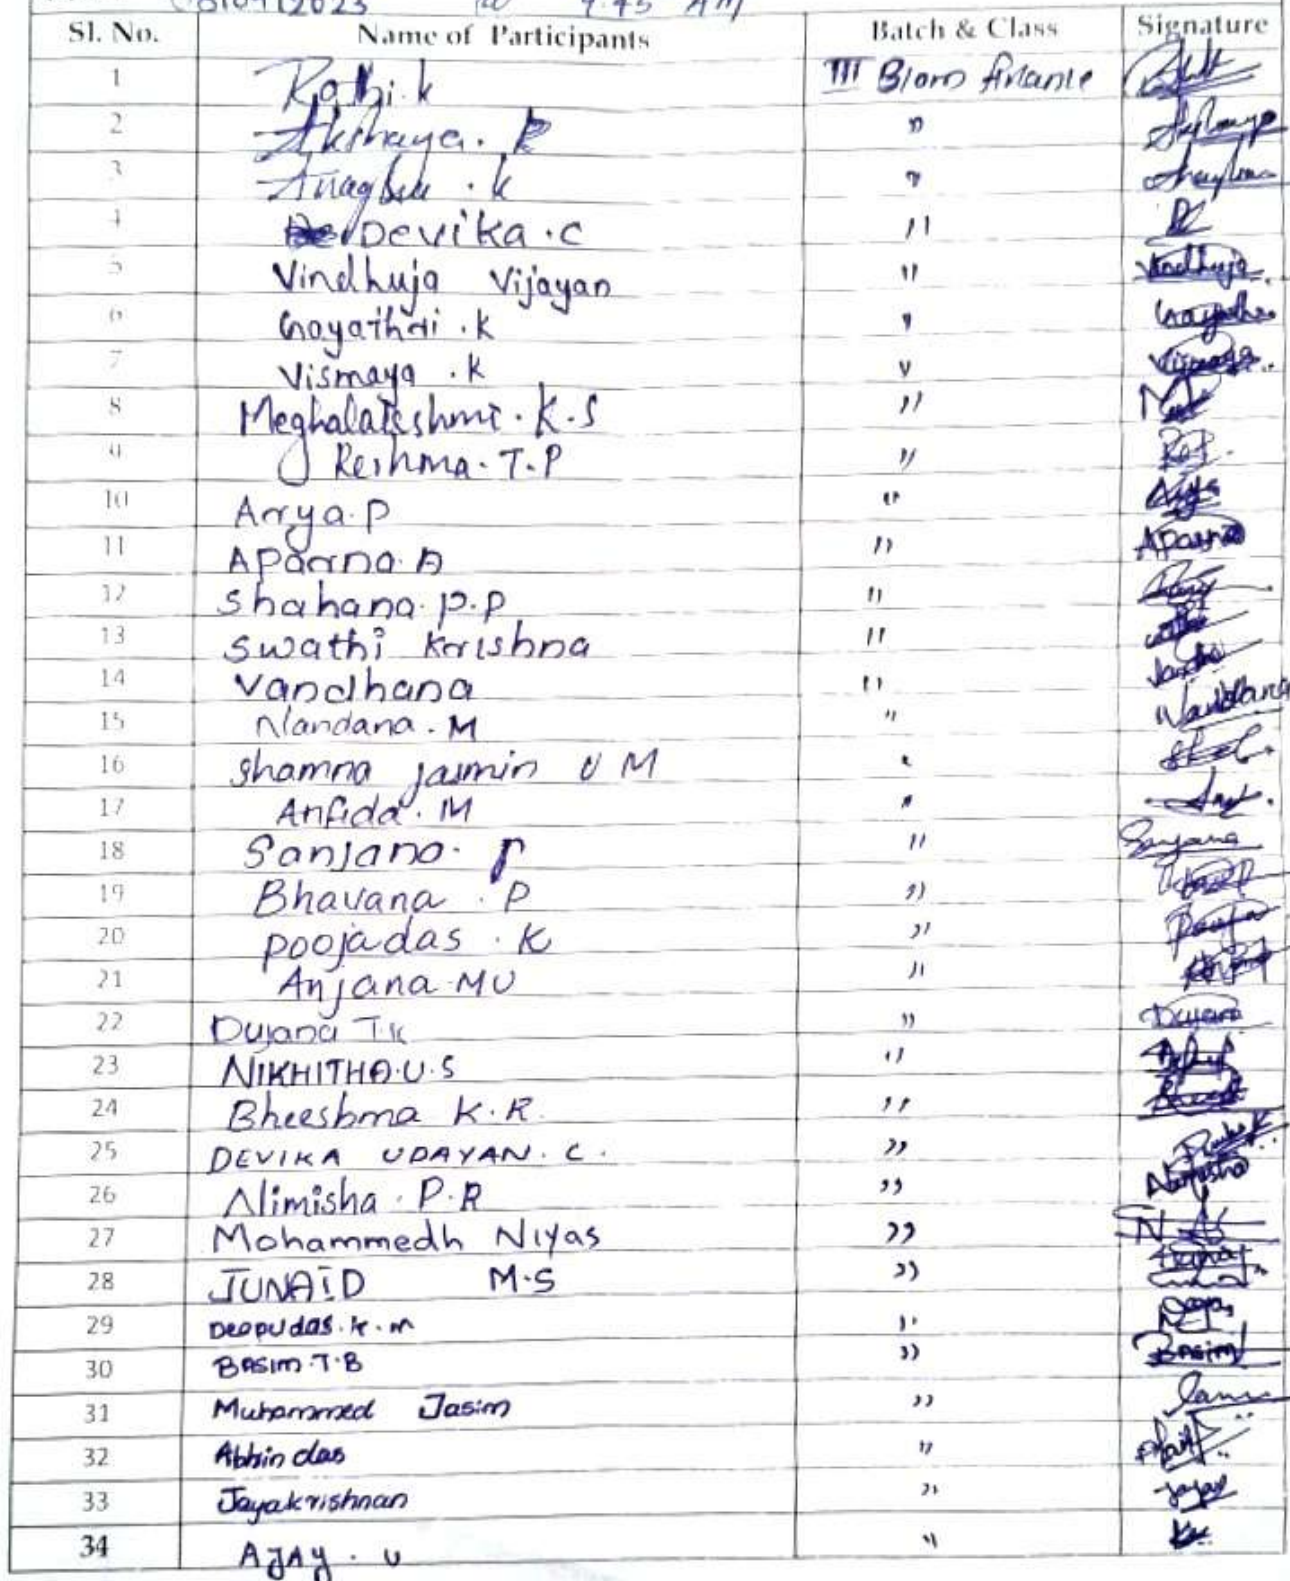 9.45 AM
Sl. No. Name of Participants Batch & Class Signature
1 Rathi.k III Bcom finance
2 Akshaya. P "
3 Anagha . k "
4 Devika.C "
5 Vindhuja Vijayan " Vindhuja
6 Gayathri .K "
7 Vismaya .K " Vismaya
8 Meghalakshmi.K.S "
9 Reshma.T.P "
10 Arya.P "
11 Aparna.A " Aparna
12 Shahana.P.P "
13 Swathi Krishna "
14 Vandhana "
15 Nandana.M " Nandana
16 Shamna jasmin U M "
17 Anfida.M "
18 Sanjana. P " Sanjana
19 Bhavana .P "
20 Poojadas .K " Pooja
21 Anjana.MU "
22 Dujana T.K " Dujana
23 NIKHITHA.U.S "
24 Bheeshma K.R. "
25 DEVIKA UDAYAN.C. "
26 Nimisha.P.R " Nimisha
27 Mohammedh Niyas "
28 JUNAID M.S "
29 Deepudas.k.m "
30 Basim.T.B " Basim
31 Muhammed Jasim "
32 Abhindas "
33 Jayakrishnan "
34 AJAY.U "